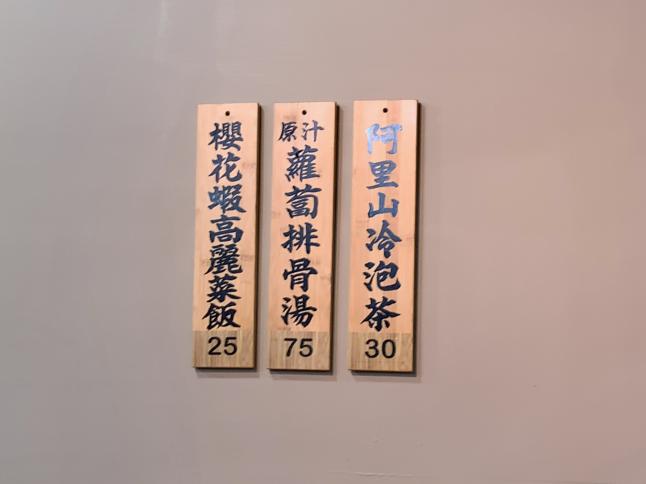 櫻花蝦高麗菜飯
25
原汁
蘿蔔排骨湯
75
阿里山冷泡茶
30